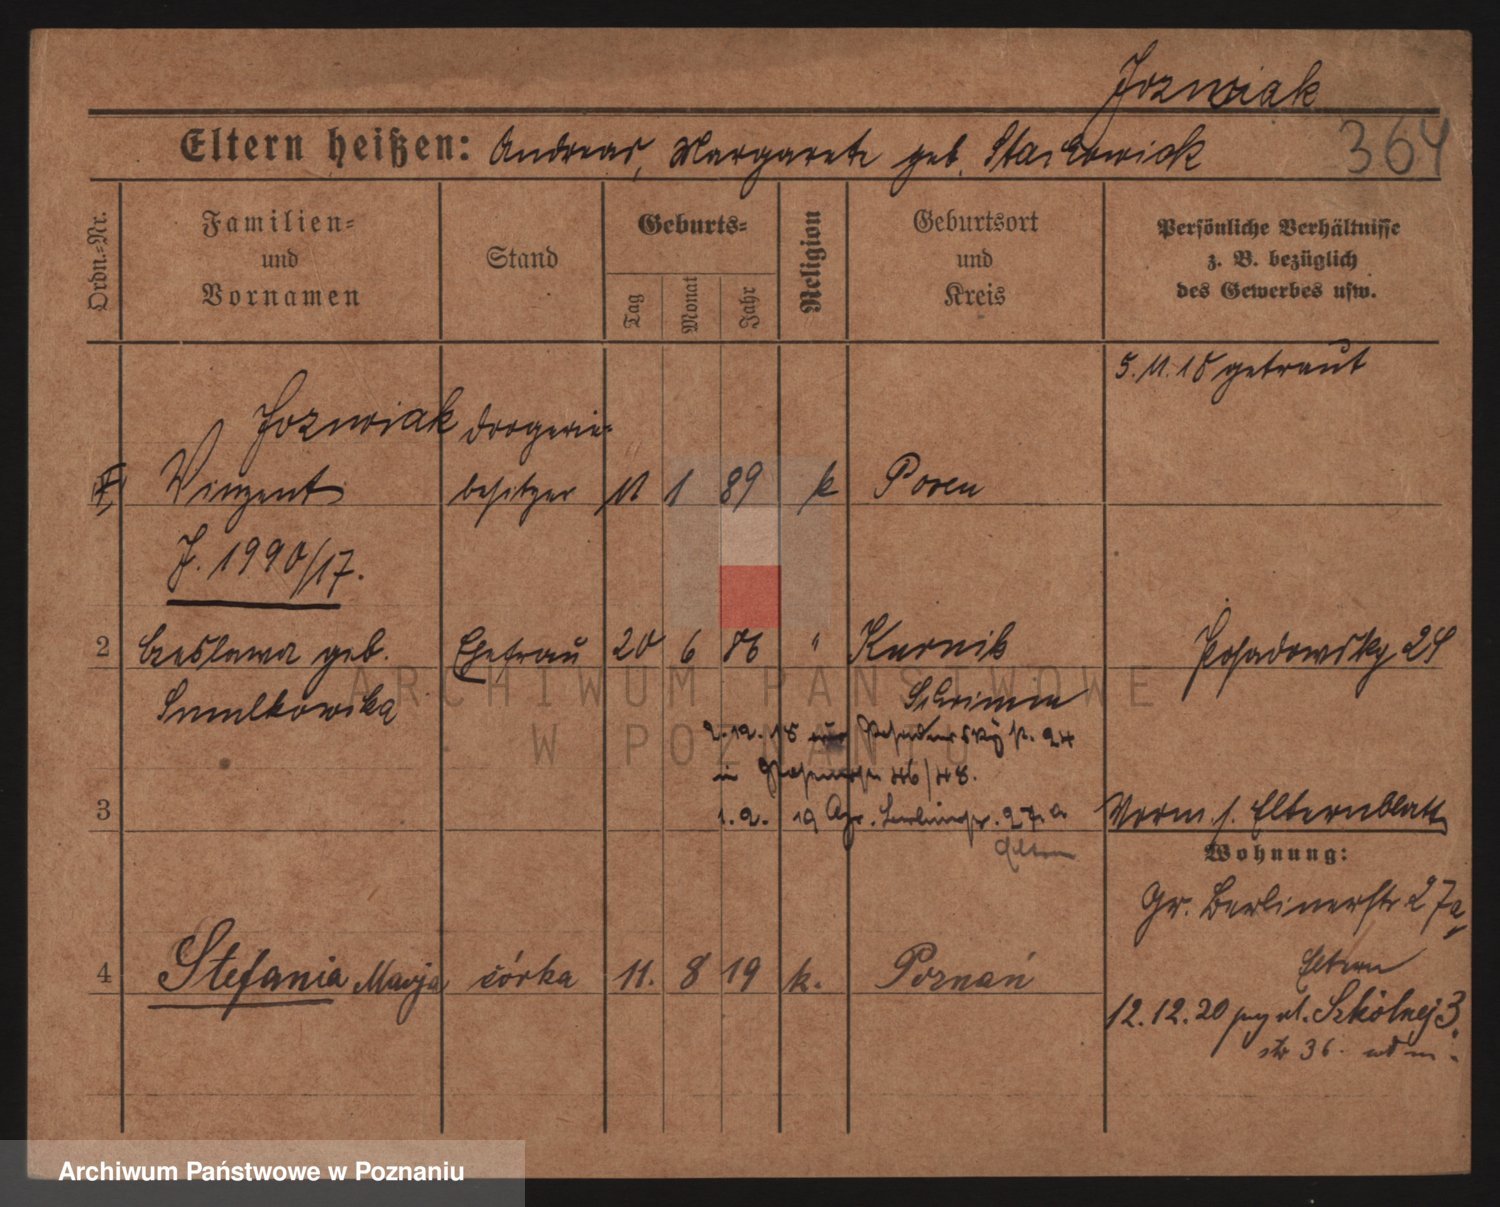 Jozwiak
364
Eltern heißen: Andreas, Margarete geb. Stachowiak
Ordn.-Nr.
Familien-
und
Vornamen
Stand
Geburts-
Tag
Monat
Jahr
Religion
Geburtsort
und
Kreis
Persönliche Verhältnisse
z. B. bezüglich
des Gewerbes usw.
5.11.18 getraut
Jozwiak Drogerie-
Vinzent besitzer 11 1 89 k Posen
J. 1990/17.
2 Czeslawa geb. Ehefrau 20 6 86 " Kurnik Posadowsky 24
Smulkowska Schrimm
2.12.18
in 46/48.
3 1.2. 19 Gr. Berlinerstr. 27a Vorm. s. Elternblatt
Eltern
Wohnung:
Gr. Berlinerstr 27a,
4 Stefania Marja córka 11. 8 19 k. Poznań
Eltern
12.12.20 przy ul. Szkólnej 3.
str 36.
ARCHIWUM PAŃSTWOWE
W POZNANIU
Archiwum Państwowe w Poznaniu